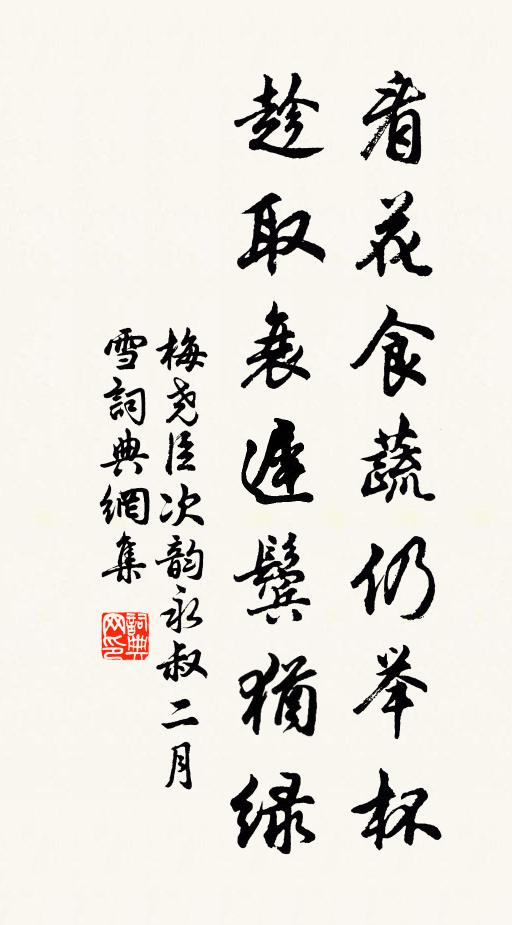 看花食蔬仍举杯
趁取衰遲鬢猶緑
梅尧臣次韵永叔二月
雪詞典網集
詞典
网印